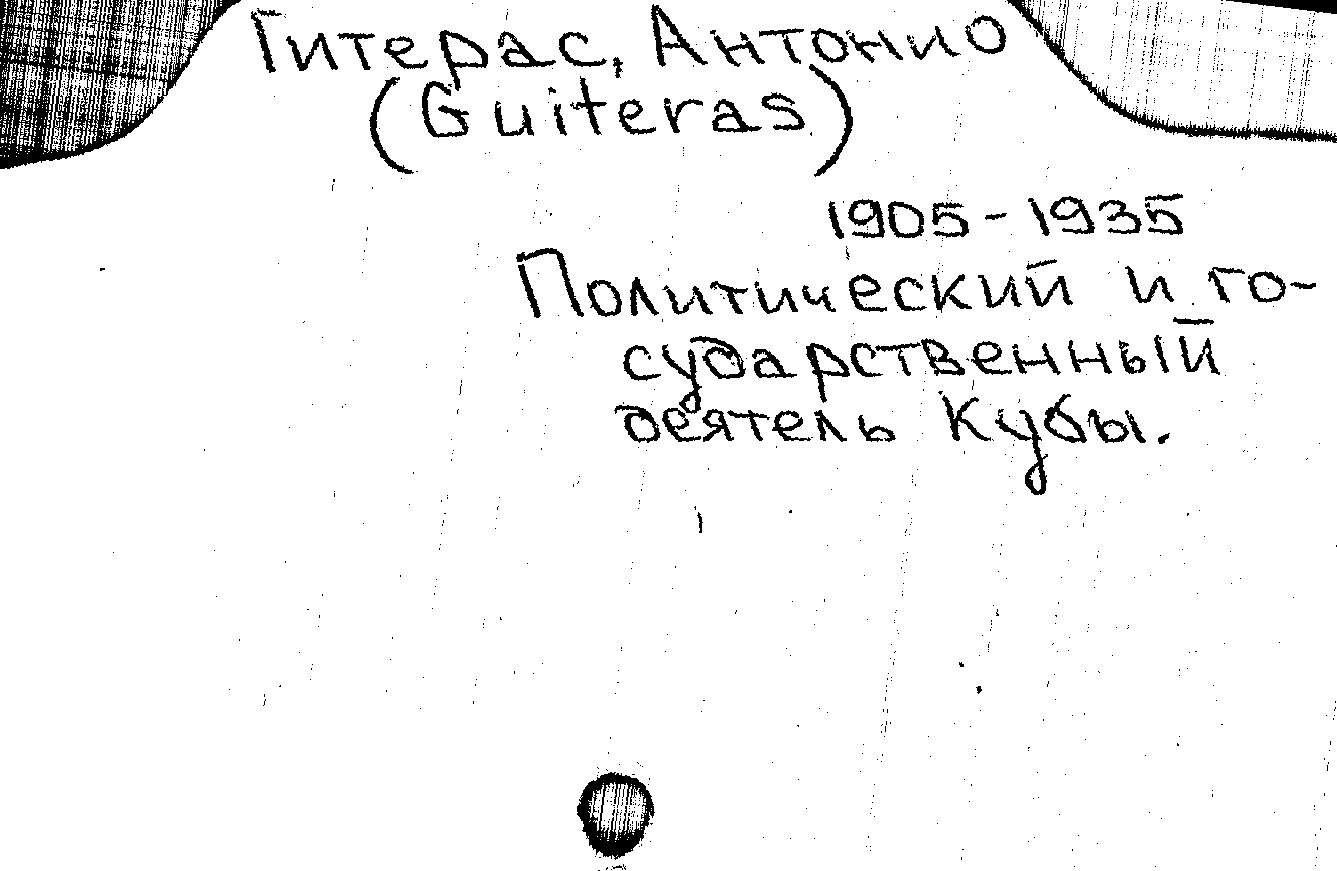 Гитерас, Антонио
(Guiteras)
1905-1935
Политический и го-
сударственный
деятель Кубы.